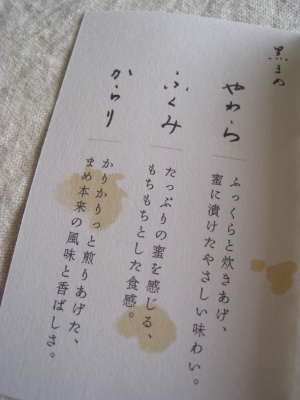 黒まめ
やわら
ふっくらと炊きあげ、
蜜に漬けたやさしい味わい。
ふくみ
たっぷりの蜜を感じる、
もちもちとした食感。
からり
かりかりっと煎りあげた、
まめ本来の風味と香ばしさ。